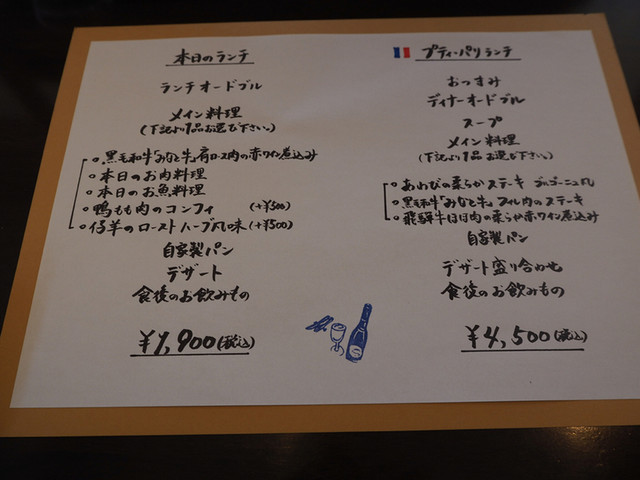 本日のランチ
ランチオードブル
メイン料理
(下記より1品お選び下さい。)
○黒毛和牛「みなと牛」肩ロース肉の赤ワイン煮込み
○本日のお肉料理
○本日のお魚料理
○鴨もも肉のコンフィ (+¥500)
○仔羊のローストハーブ風味 (+¥500)
自家製パン
デザート
食後のお飲みもの
¥1,900(税込)
プティ・パリランチ
おつまみ
ディナーオードブル
スープ
メイン料理
(下記より1品お選び下さい。)
○あわびの柔らかステーキ ブルゴーニュ風
○黒毛和牛「みなと牛」フィレ肉のステーキ
○飛騨牛ほほ肉の柔らか赤ワイン煮込み
自家製パン
デザート盛り合わせ
食後のお飲みもの
¥4,500(税込)